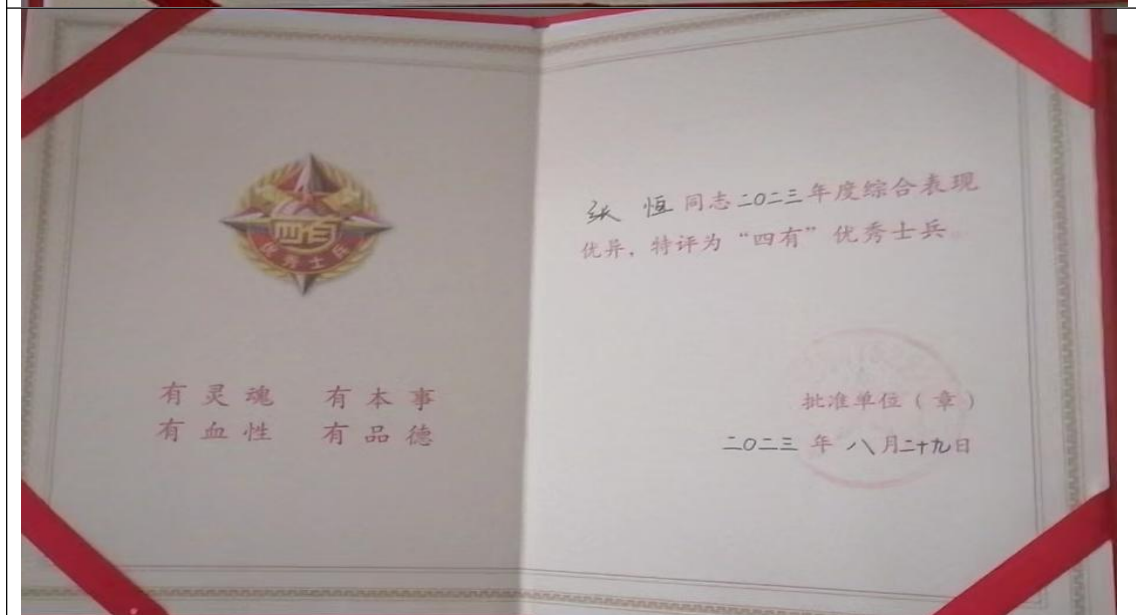 四有
优秀士兵
有灵魂 有本事
有血性 有品德
张恒同志二〇二三年度综合表现
优异，特评为“四有”优秀士兵
批准单位（章）
二〇二三年八月二十九日